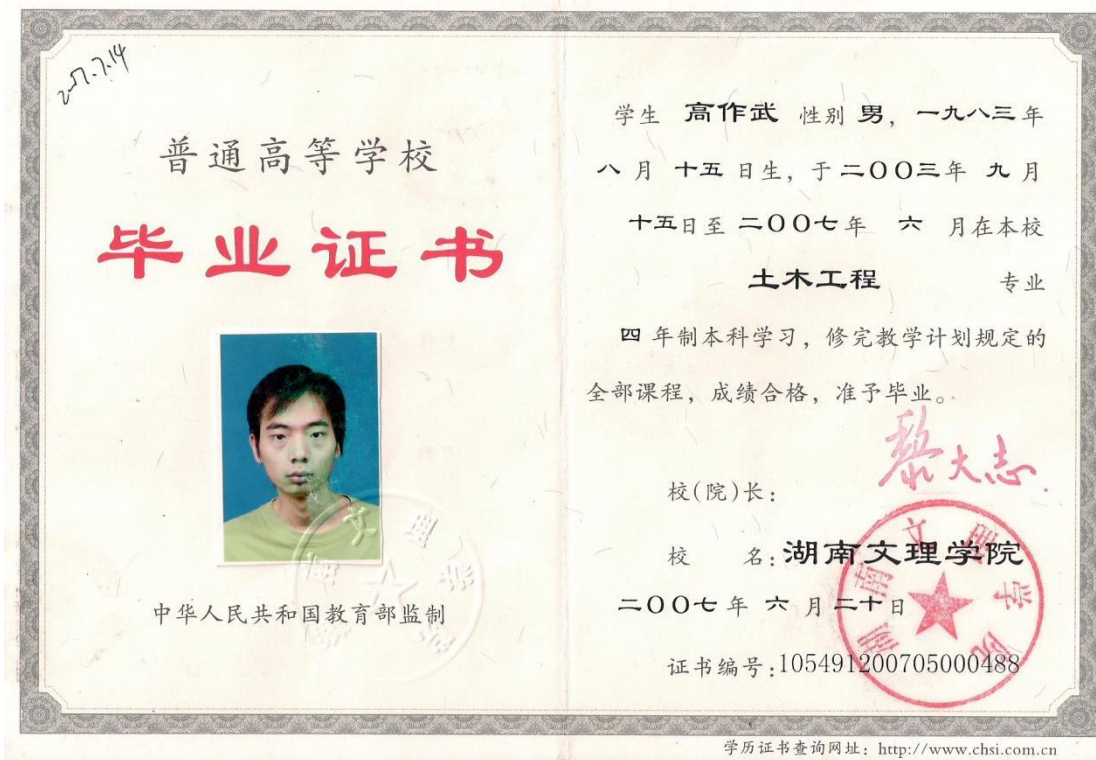 2007.7.14
普通高等学校
毕业证书
中华人民共和国教育部监制
学生 高作武 性别 男，一九八三年
八月 十五 日生，于二〇〇三年 九月
十五日至 二〇〇七年 六 月在本校
土木工程 专业
四 年制本科学习，修完教学计划规定的
全部课程，成绩合格，准予毕业。
校(院)长：
黎大志
校 名：湖南文理学院
二〇〇七年 六 月二十日
湖南文理学院
证书编号：105491200705000488
学历证书查询网址：http://www.chsi.com.cn